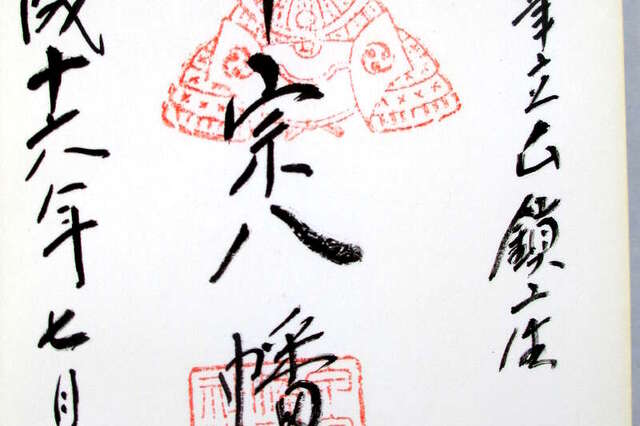 筆立山鎮座
宗八幡
成十六年七月